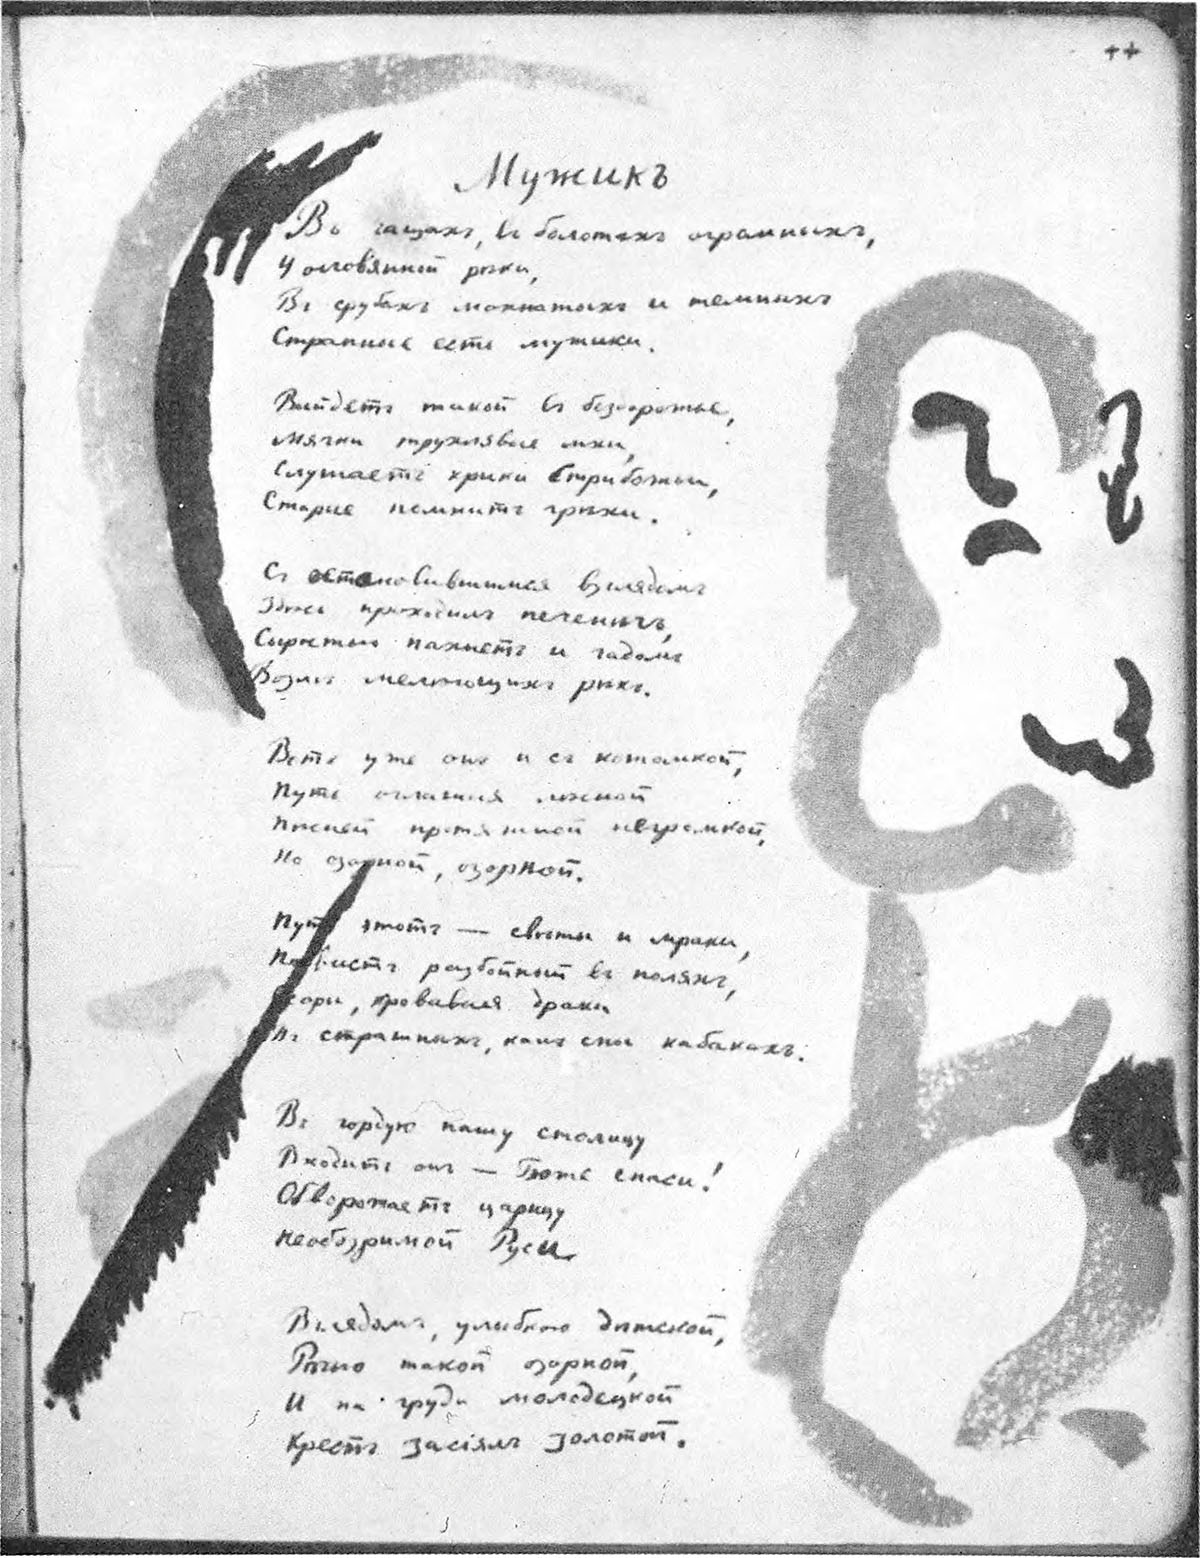 ++
Мужикъ
Въ чащахъ, въ болотахъ огромныхъ,
У оловянной рѣки,
Въ срубахъ мохнатыхъ и темныхъ
Странные есть мужики.
Выйдетъ такой въ бездорожье,
Мягки трухлявые мхи,
Слушаетъ крики Стрибожьи,
Старые помнитъ грѣхи.
Съ остановившимся взглядомъ
Здѣсь проходилъ печенѣгъ,
Сыростью пахнетъ и гадомъ
Возлѣ мелѣющихъ рѣкъ.
Вотъ уже онъ и съ котомкой,
Путь оглашая лѣсной
Пѣсней протяжной негромкой,
Но озорной, озорной.
Путь этотъ — свѣты и мраки,
Посвистъ разбойный въ поляхъ,
Ссоры, кровавыя драки
Въ страшныхъ, какъ сны кабакахъ.
Въ гордую нашу столицу
Входитъ онъ — Боже спаси!
Обворожаетъ царицу
Необозримой Руси
Взглядомъ, улыбкою дѣтской,
Рѣчью такой озорной,
И на груди молодецкой
Крестъ засіялъ золотой.